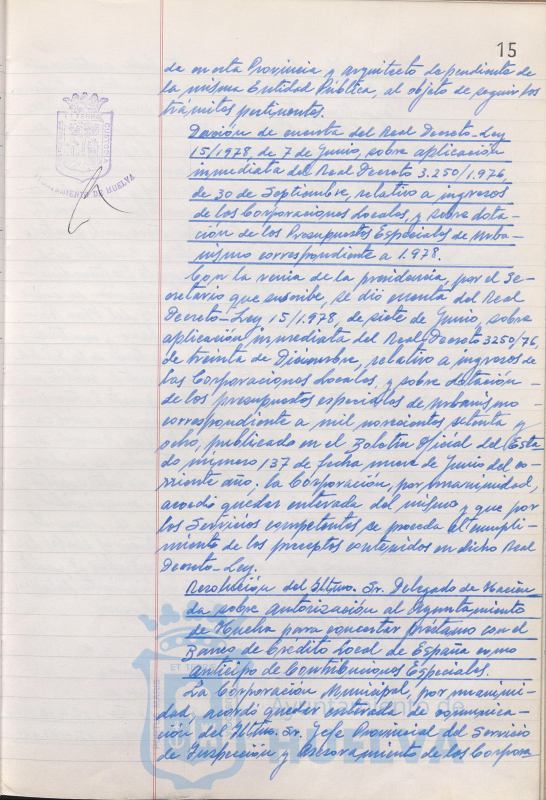 15
da en esta Provincia y arquitecto dependiente de
la misma Entidad Pública, al objeto de seguir los
trámites pertinentes.
Dación de cuenta del Real Decreto-Ley
15/1978 de 7 de Junio, sobre aplicación
inmediata del Real Decreto 3.250/1.976,
de 30 de Septiembre, relativo a ingresos
de las Corporaciones Locales, y sobre dota-
ción de los Presupuestos Especiales de Urba-
nismo correspondiente a 1.978.
Con la venia de la presidencia, por el Se-
cretario que suscribe, se dio cuenta del Real
Decreto-Ley 15/1.978, de siete de Junio, sobre
aplicación inmediata del Real Decreto 3250/76,
de treinta de Diciembre, relativo a ingresos de
las Corporaciones Locales, y sobre dotación -
de los presupuestos especiales de urbanismo -
correspondiente a mil novecientos setenta y
ocho, publicado en el Boletín Oficial del Esta-
do número 137 de fecha nueve de Junio del co-
rriente año; la Corporación, por unanimidad,
acordó quedar enterada del mismo y que por
los Servicios competentes se proceda al cumpli-
miento de los preceptos contenidos en dicho Real
Decreto-Ley.
Resolución del Iltmo. Sr. Delegado de Hacien
da sobre autorización al Ayuntamiento
de Huelva para concertar préstamo con el
Banco de Crédito Local de España como
anticipo de Contribuciones Especiales.
La Corporación Municipal, por unanimi-
dad, acordó quedar enterada de comunica-
ción del Iltmo. Sr. Jefe Provincial del Servicio
de Inspección y Asesoramiento de las Corpora
AYUNTAMIENTO DE HUELVA
Ayuntamiento de
HUELVA